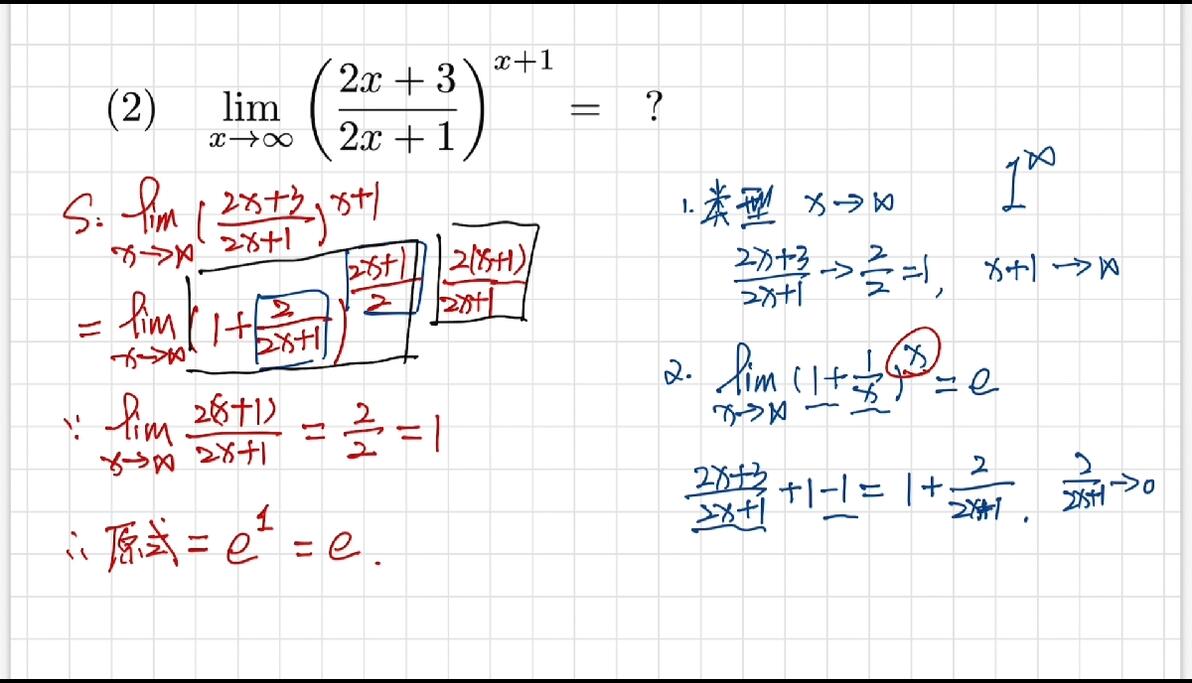 (2) lim x→∞ ((2x + 3)/(2x + 1))^(x+1) = ?
S: lim x→∞ ((2x+3)/(2x+1))^(x+1)
= lim x→∞ (1+ 2/(2x+1))^((2x+1)/2 · 2(x+1)/(2x+1))
∵ lim x→∞ 2(x+1)/(2x+1) = 2/2 = 1
∴ 原式 = e^1 = e.
1. 类型 x→∞ 1^∞
(2x+3)/(2x+1) → 2/2 = 1, x+1 → ∞
2. lim x→∞ (1+ 1/x)^x = e
(2x+3)/(2x+1) +1-1 = 1+ 2/(2x+1). 2/(2x+1) →0